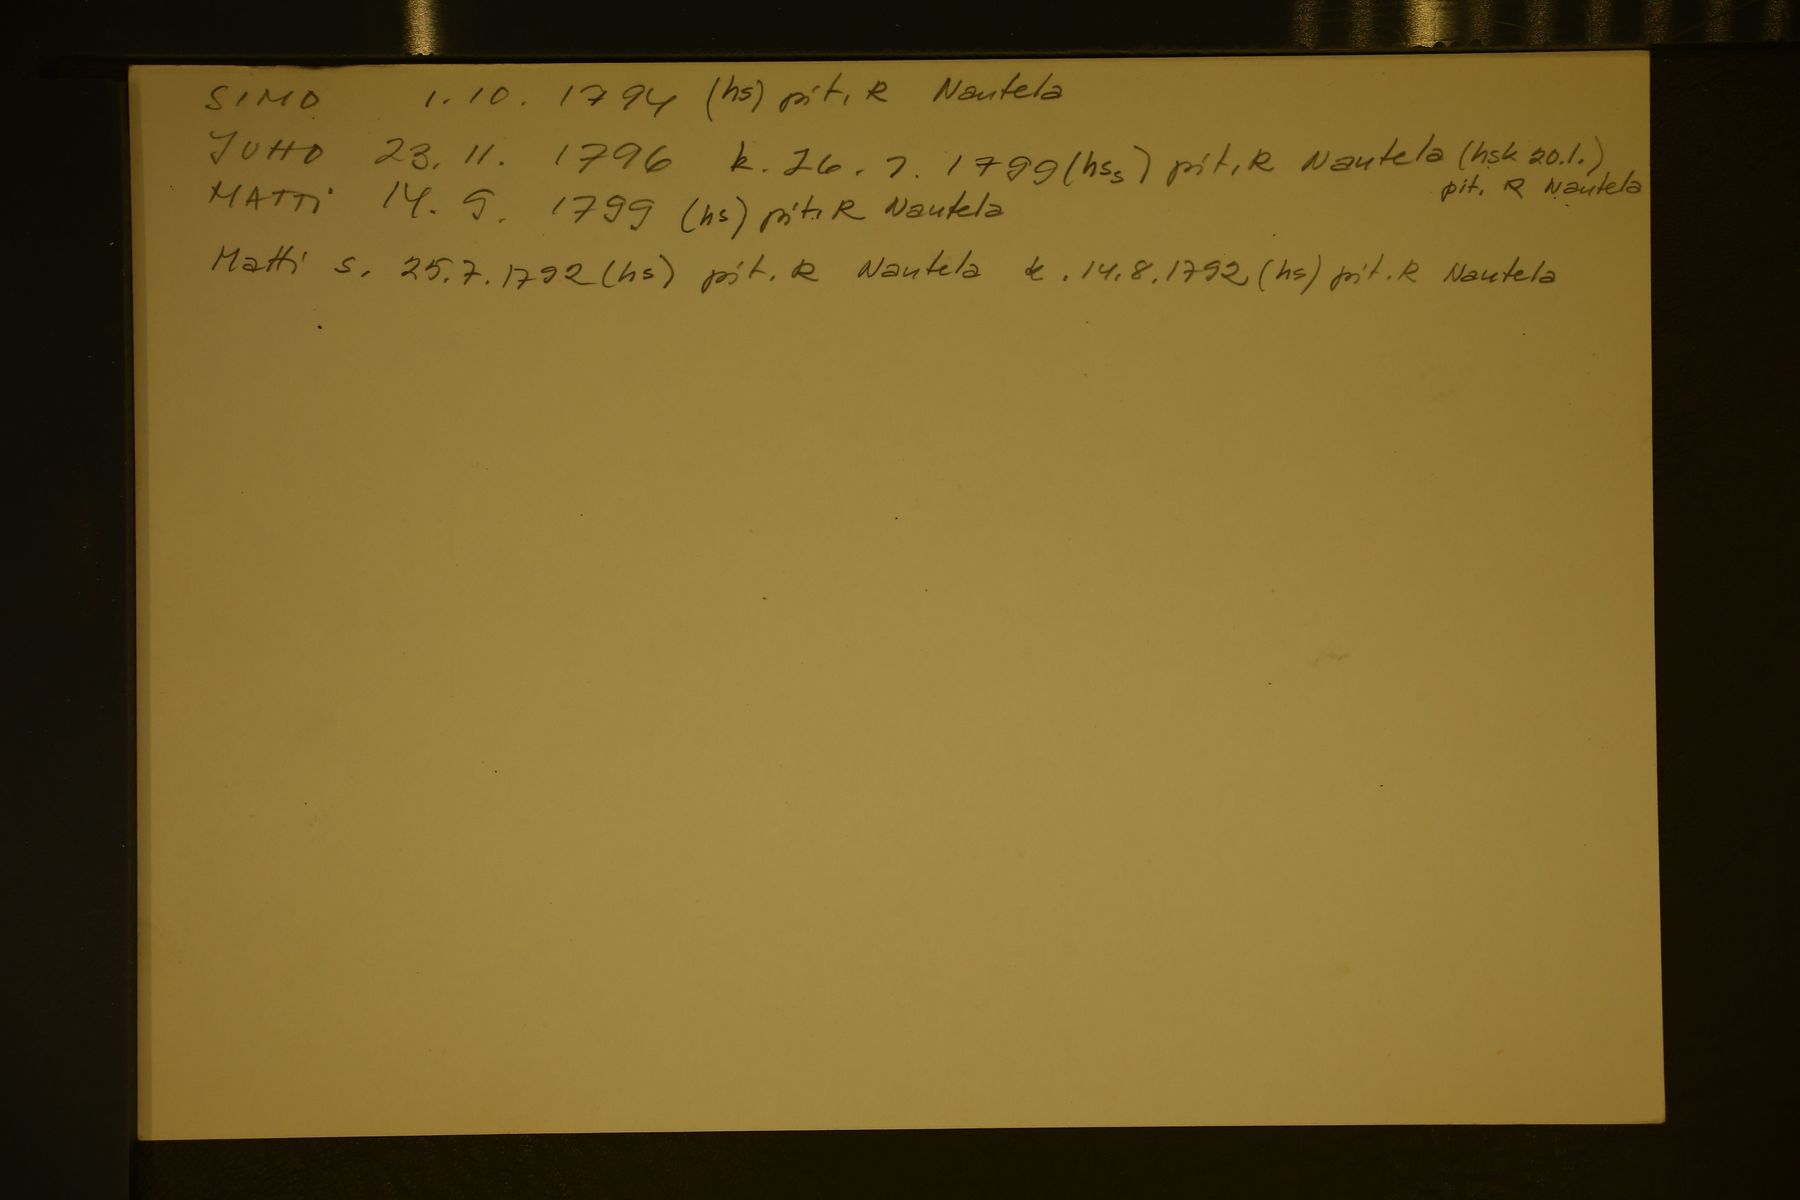 SIMO 1.10. 1794 (hs) pit. R Nautela
JUHO 23.11. 1796 k. 26.7. 1799 (hss) pit. R Nautela (hsk 20.1.)
pit. R Nautela
MATTI 14.9. 1799 (hs) pit. R Nautela
Matti s. 25.7.1792 (hs) pit. R Nautela k. 14.8.1792 (hs) pit. R Nautela